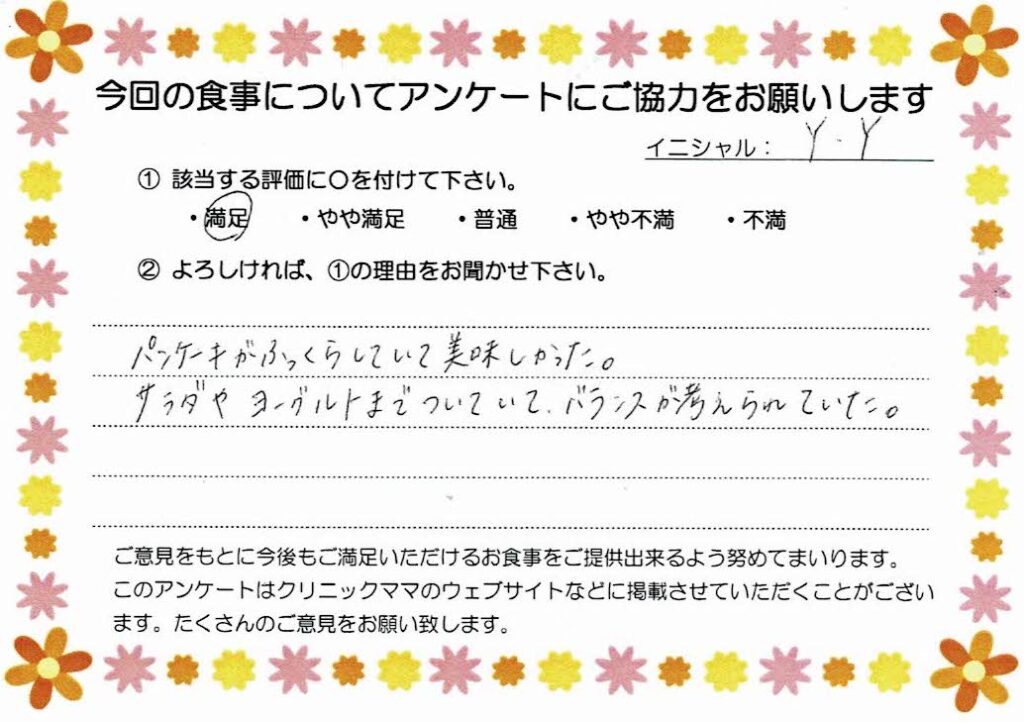 今回の食事についてアンケートにご協力をお願いします
イニシャル： Y．Y
① 該当する評価に〇を付けて下さい。
・満足 ・やや満足 ・普通 ・やや不満 ・不満
② よろしければ、①の理由をお聞かせ下さい。
パンケーキがふっくらしていて美味しかった。
サラダや ヨーグルトまでついていて、バランスが考えられていた。
ご意見をもとに今後もご満足いただけるお食事をご提供出来るよう努めてまいります。
このアンケートはクリニックママのウェブサイトなどに掲載させていただくことがござい
ます。たくさんのご意見をお願い致します。